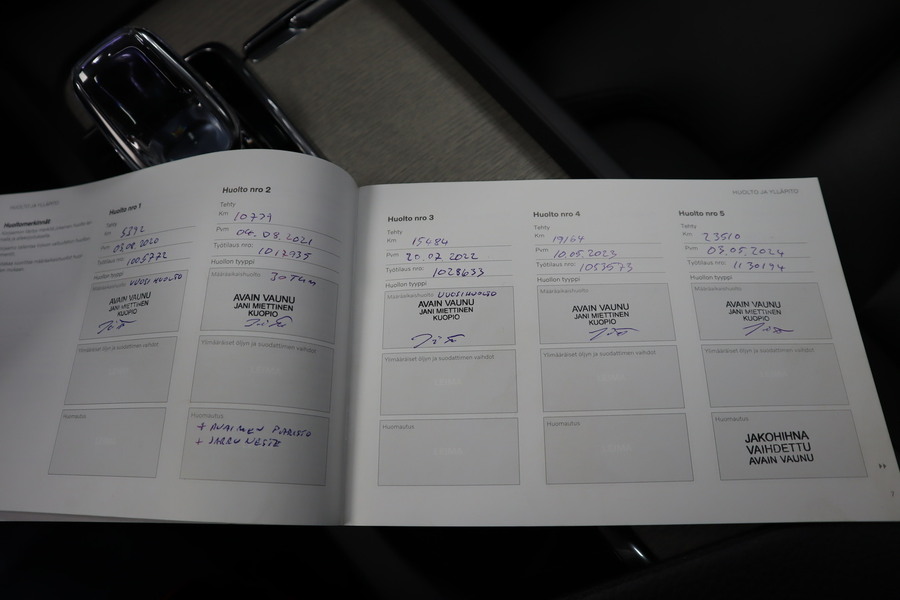 HUOLTO JA YLLÄPITO
Huoltomerkinnät
Huolto nro 1
Tehty
km 5892
Pvm 03.08.2020
Työtilaus nro: 1005772
Huollon tyyppi
Määräaikaishuolto VUOSIHUOLTO
AVAIN VAUNU
JANI MIETTINEN
KUOPIO
Ylimääräiset öljyn ja suodattimen vaihdot
Huomautus
Huolto nro 2
Tehty
Km 10779
Pvm 04.08.2021
Työtilaus nro: 1012935
Huollon tyyppi 30TKM
Määräaikaishuolto
AVAIN VAUNU
JANI MIETTINEN
KUOPIO
Ylimääräiset öljyn ja suodattimen vaihdot
Huomautus
+ AVAIMEN PARISTO
+ JARRUNESTE
HUOLTO JA YLLÄPITO
Huolto nro 3
Tehty
Km 15484
Pvm 20.07.2022
Työtilaus nro: 1028633
Huollon tyyppi
Määräaikaishuolto VUOSIHUOLTO
AVAIN VAUNU
JANI MIETTINEN
KUOPIO
Ylimääräiset öljyn ja suodattimen vaihdot
Huomautus
Huolto nro 4
Tehty
Km 19164
Pvm 10.05.2023
Työtilaus nro: 1053573
Huollon tyyppi
Määräaikaishuolto
AVAIN VAUNU
JANI MIETTINEN
KUOPIO
Ylimääräiset öljyn ja suodattimen vaihdot
Huomautus
Huolto nro 5
Tehty
Km 23510
Pvm 03.05.2024
Työtilaus nro: 1130194
Huollon tyyppi
Määräaikaishuolto
AVAIN VAUNU
JANI MIETTINEN
KUOPIO
Ylimääräiset öljyn ja suodattimen vaihdot
Huomautus
JAKOHIHNA
VAIHDETTU
AVAIN VAUNU